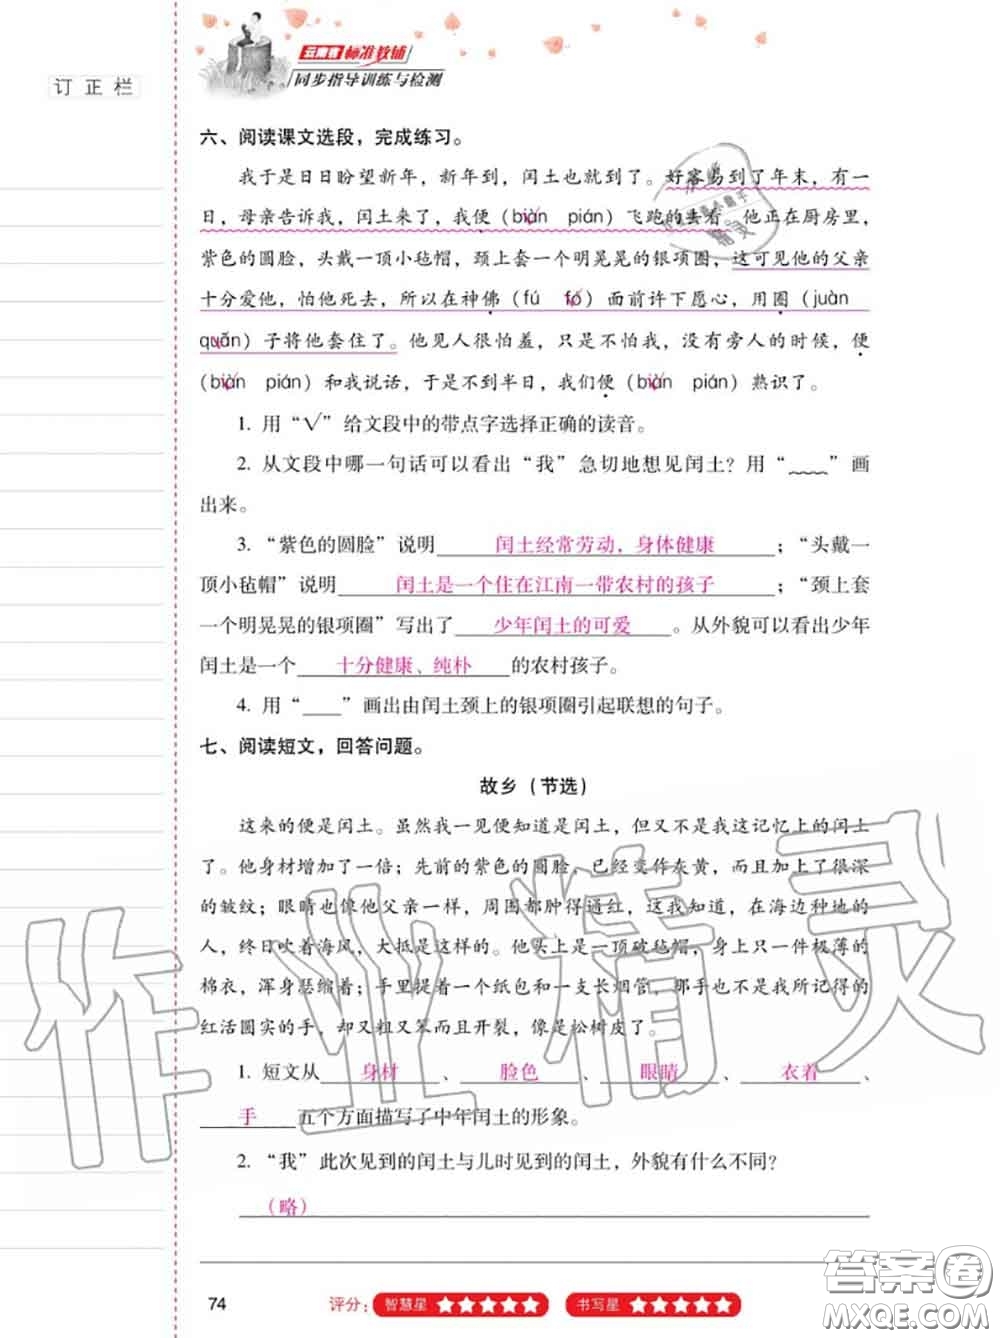 云南省标准教辅
同步指导训练与检测
订正栏
六、阅读课文选段，完成练习。
我于是日日盼望新年，新年到，闰土也就到了。好容易到了年末，有一
日，母亲告诉我，闰土来了，我便（biàn pián）飞跑的去看。他正在厨房里，
紫色的圆脸，头戴一顶小毡帽，颈上套一个明晃晃的银项圈，这可见他的父亲
十分爱他，怕他死去，所以在神佛（fú fó）面前许下愿心，用圈（juàn
quān）子将他套住了。他见人很怕羞，只是不怕我，没有旁人的时候，便
（biàn pián）和我说话，于是不到半日，我们便（biàn pián）熟识了。
1. 用“√”给文段中的带点字选择正确的读音。
2. 从文段中哪一句话可以看出“我”急切地想见闰土？用“﹏﹏”画
出来。
3. “紫色的圆脸”说明 闰土经常劳动，身体健康 ；“头戴一
顶小毡帽”说明 闰土是一个住在江南一带农村的孩子 ；“颈上套
一个明晃晃的银项圈”写出了 少年闰土的可爱 。从外貌可以看出少年
闰土是一个 十分健康、纯朴 的农村孩子。
4. 用“____”画出由闰土颈上的银项圈引起联想的句子。
七、阅读短文，回答问题。
故乡（节选）
这来的便是闰土。虽然我一见便知道是闰土，但又不是我这记忆上的闰土
了。他身材增加了一倍；先前的紫色的圆脸，已经变作灰黄，而且加上了很深
的皱纹；眼睛也像他父亲一样，周围都肿得通红，这我知道，在海边种地的
人，终日吹着海风，大抵是这样的。他头上是一顶破毡帽，身上只一件极薄的
棉衣，浑身瑟缩着；手里提着一个纸包和一支长烟管，那手也不是我所记得的
红活圆实的手，却又粗又笨而且开裂，像是松树皮了。
1. 短文从 身材 、 脸色 、 眼睛 、 衣着 、
手 五个方面描写了中年闰土的形象。
2. “我”此次见到的闰土与儿时见到的闰土，外貌有什么不同？
（略）
74 评分：智慧星★★★★★ 书写星★★★★★
作业精灵
答案圈
MXQE.COM